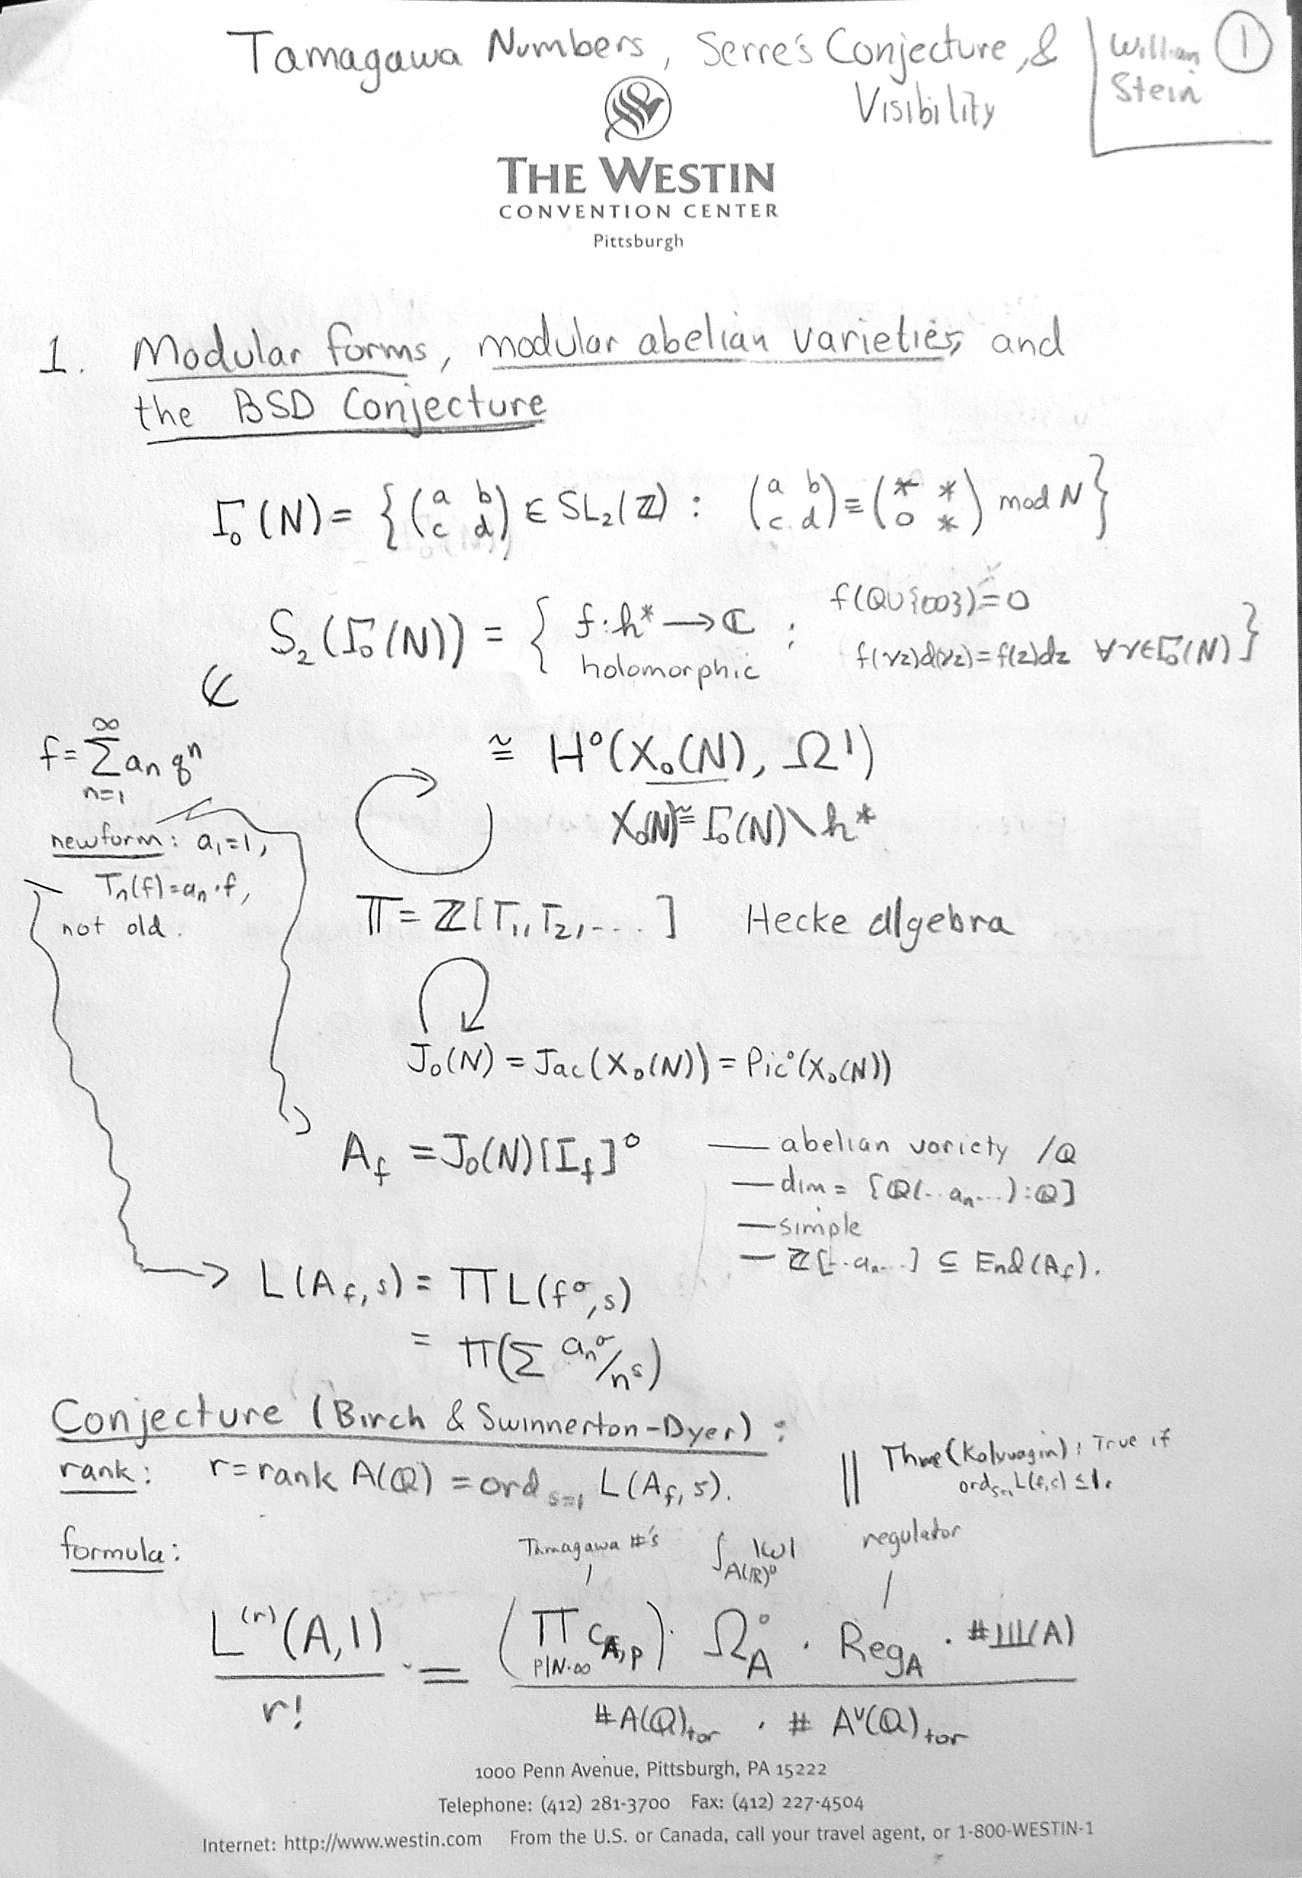 Tamagawa Numbers, Serre's Conjecture, &
Visibility
William
Stein
1
THE WESTIN
CONVENTION CENTER
Pittsburgh
1. Modular forms, modular abelian varieties, and
the BSD Conjecture
Γ₀(N) = {(a b c d) ∈ SL₂(ℤ) : (a b c d) ≡ (* * 0 *) mod N}
S₂(Γ₀(N)) = { f: h* → ℂ holomorphic : f(ℚ∪{∞}) = 0
f(γz)d(γz) = f(z)dz ∀γ∈Γ₀(N) }
f = Σ_{n=1}^∞ aₙ qⁿ
≅ H⁰(X₀(N), Ω¹)
X₀(N) ≅ Γ₀(N)\h*
newform: a₁=1,
Tₙ(f)=aₙ·f,
not old.
𝕋 = ℤ[T₁, T₂, ...] Hecke algebra
J₀(N) = Jac(X₀(N)) = Pic⁰(X₀(N))
A_f = J₀(N)[I_f]⁰
— abelian variety /ℚ
— dim = [ℚ(..aₙ...):ℚ]
— simple
— ℤ[..aₙ...] ⊆ End(A_f).
L(A_f, s) = ∏ L(f^σ, s)
= ∏(Σ aₙ^σ/n^s)
Conjecture (Birch & Swinnerton-Dyer):
rank: r = rank A(ℚ) = ord_{s=1} L(A_f, s).
|| Thm (Kolyvagin): True if
ord_{s=1} L(f,s) ≤ 1.
formula:
Tamagawa #'s
∫_{A(ℝ)⁰} |ω|
regulator
L^(r)(A,1) / r! ·= (∏_{p|N·∞} c_{A,p}) · Ω°_A · Reg_A · #Ш(A) / #A(ℚ)_tor · #A^∨(ℚ)_tor
1000 Penn Avenue, Pittsburgh, PA 15222
Telephone: (412) 281-3700 Fax: (412) 227-4504
Internet: http://www.westin.com From the U.S. or Canada, call your travel agent, or 1-800-WESTIN-1